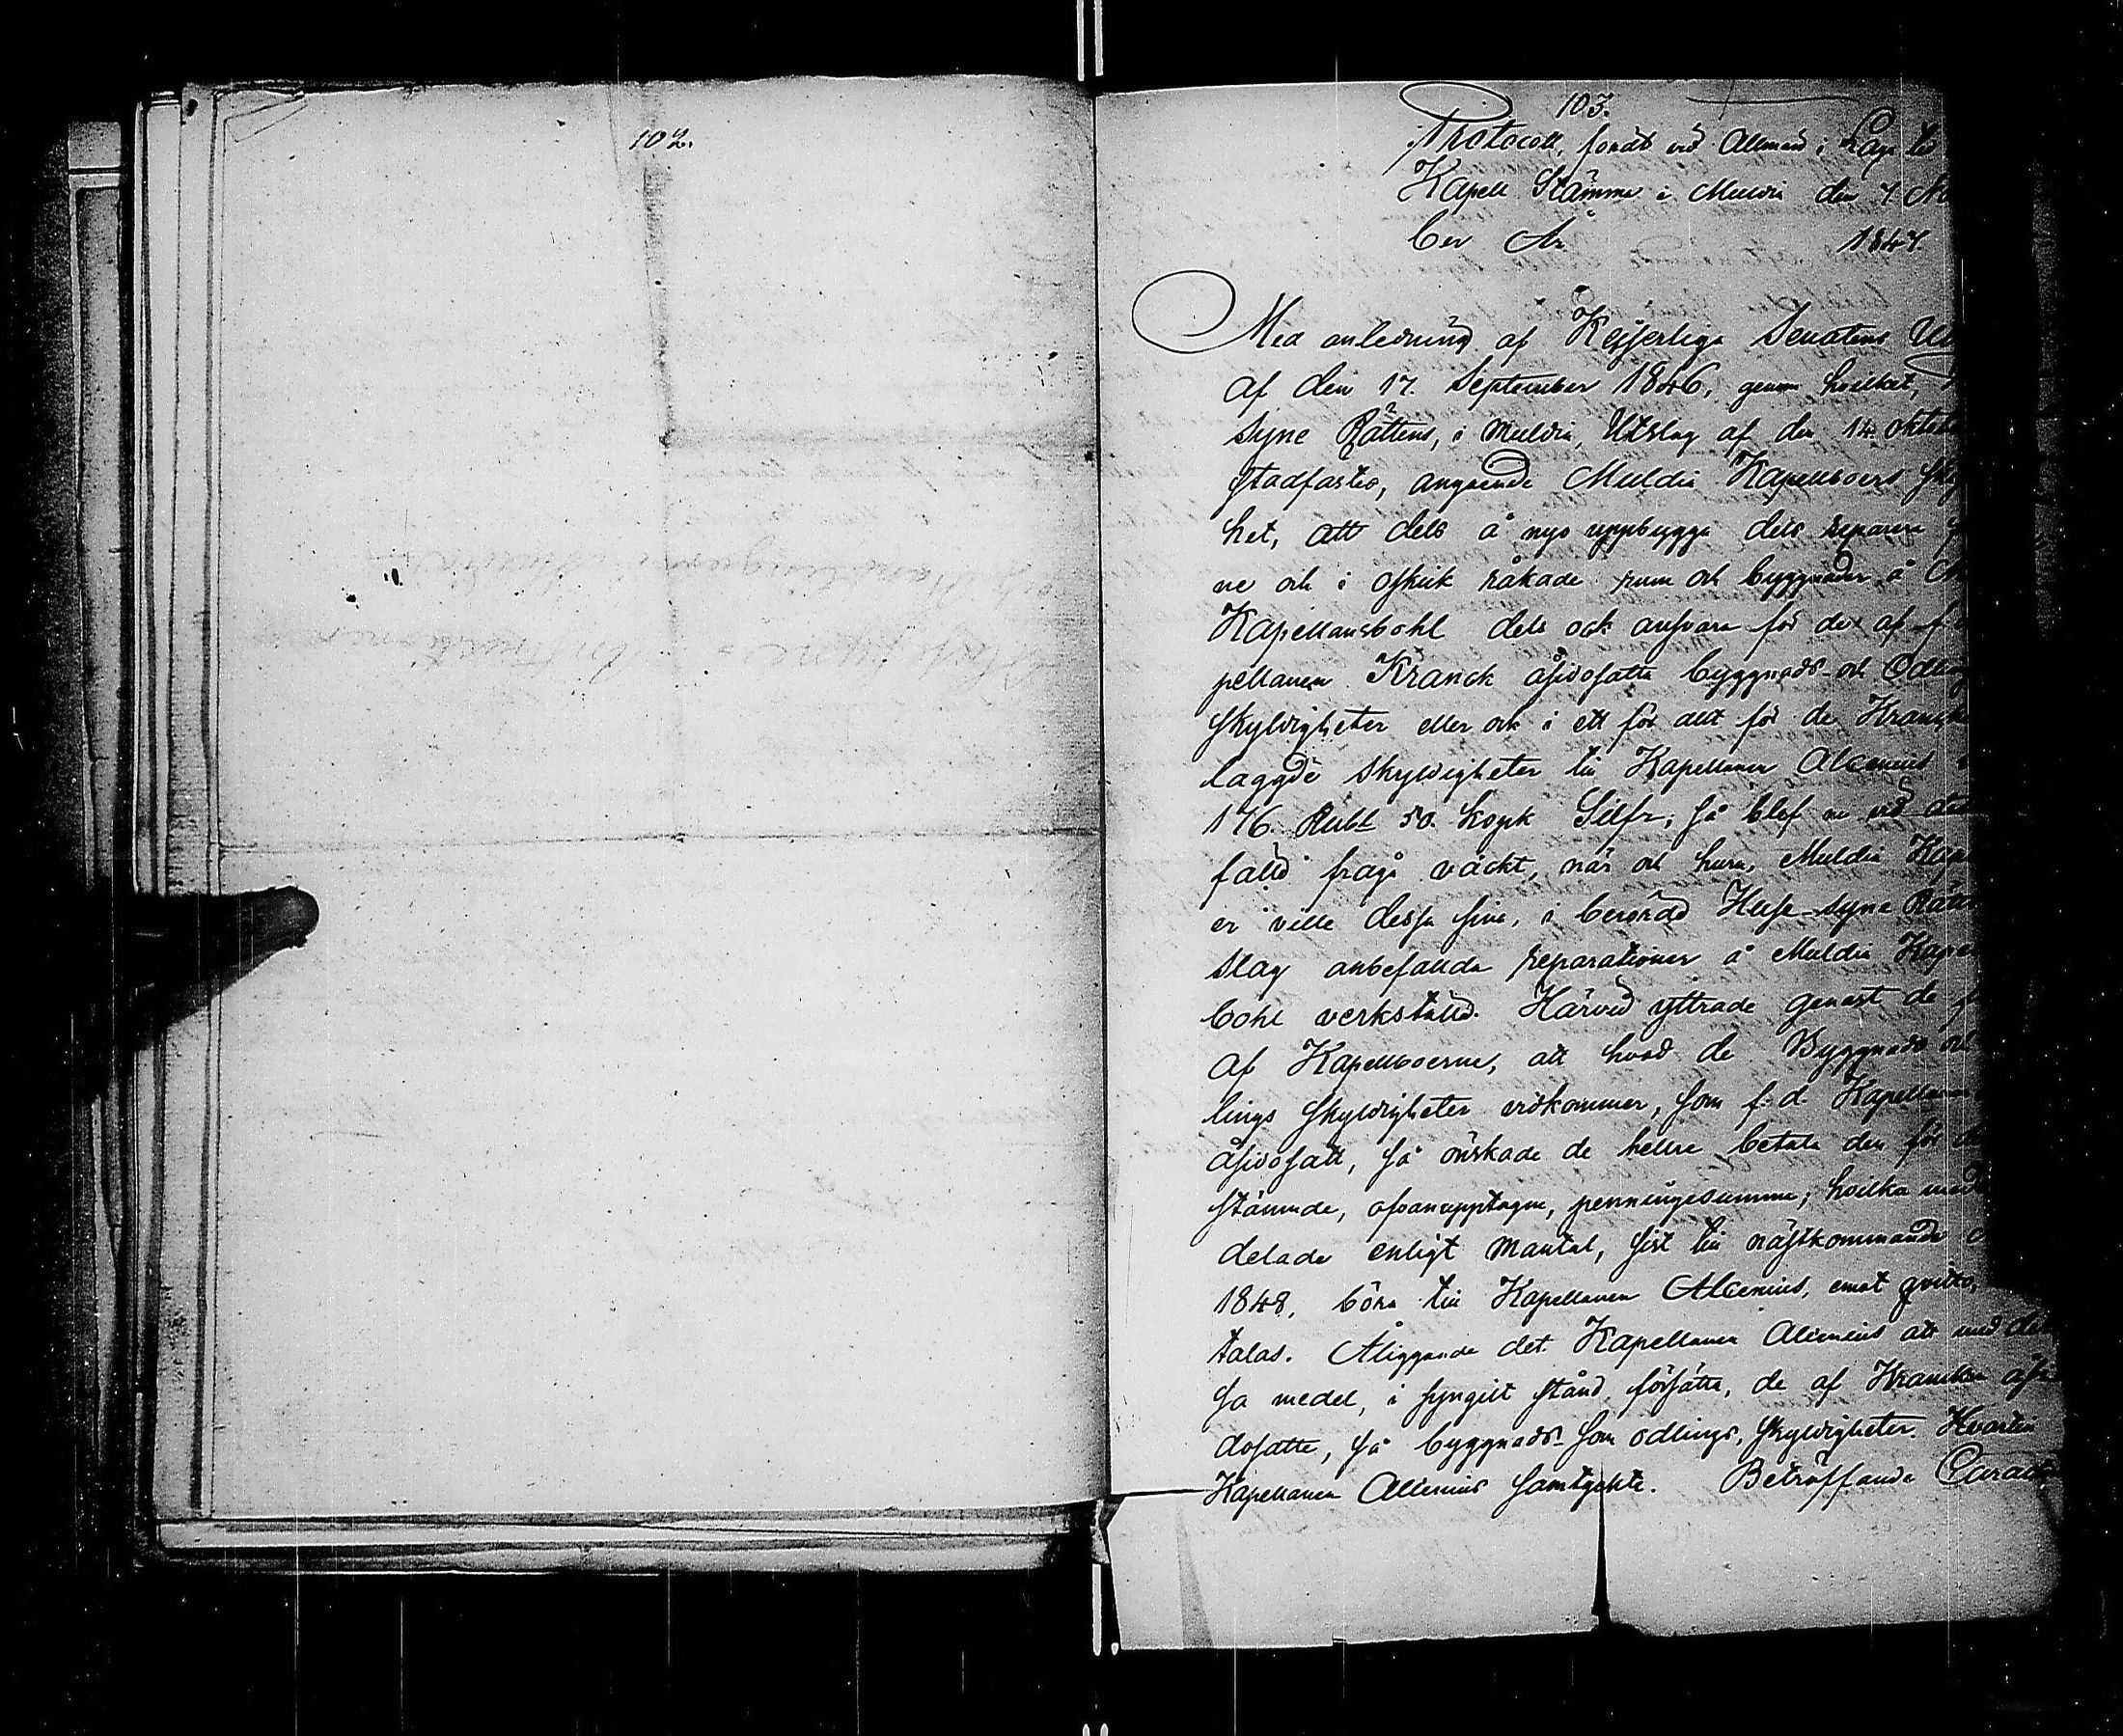 102.
103.
Protocoll, fördt vid Allmän i Laga
Kapell Stämma i Muldia den 7 No
ber År 1847.
Med anledning af Kejserliga Senatens Ut
af den 17. September 1846, genom hvilket,
syne Rättens, i Muldia, Utslag af den 14. oktob
stadfästes, angående Muldia Kapellboers skyl
het, att dels å nyo uppbygga dels reparera
ne och i oskick råkade rum och byggnader å
Kapellansbohl dels ock ansvara för de af f.
pellanen Kranck åsidosatta byggnads- och Odlings
skyldigheter eller ock i ett för allt för de Kranck
laggde skyldigheter till Kapellanen Alcenius
176 Rubl 50 kopk Silfr, så blef nu vid
fälld fråga väckt, när och huru, Muldia Kap
er ville dessa sina, i berörde Huse-syne Rätt
slag anbefallda reparationer å Muldia Kape
bohl verkställd. Härvid yttrade genast de
af Kapellboerne, att hvad de Byggnads och
lings skyldigheter vidkommer, som f: d. Kapellanen
åsidosatt, så önskade de hellre betala den för
stämnde, ofvanupptagne, penningesumma, hvilka med
delade enligt mantal, sist till nästkommande
1848, böra till Kapellanen Alcenius, emot qvitto,
talas. Åliggande det Kapellanen Alcenius att med des
sa medel, i syngilt stånd försätta, de af Krancken åsi
dosatte, så byggnads- som odlings, skyldigheter. Hvartill
Kapellanen Alcenius samtyckte. Beträffande